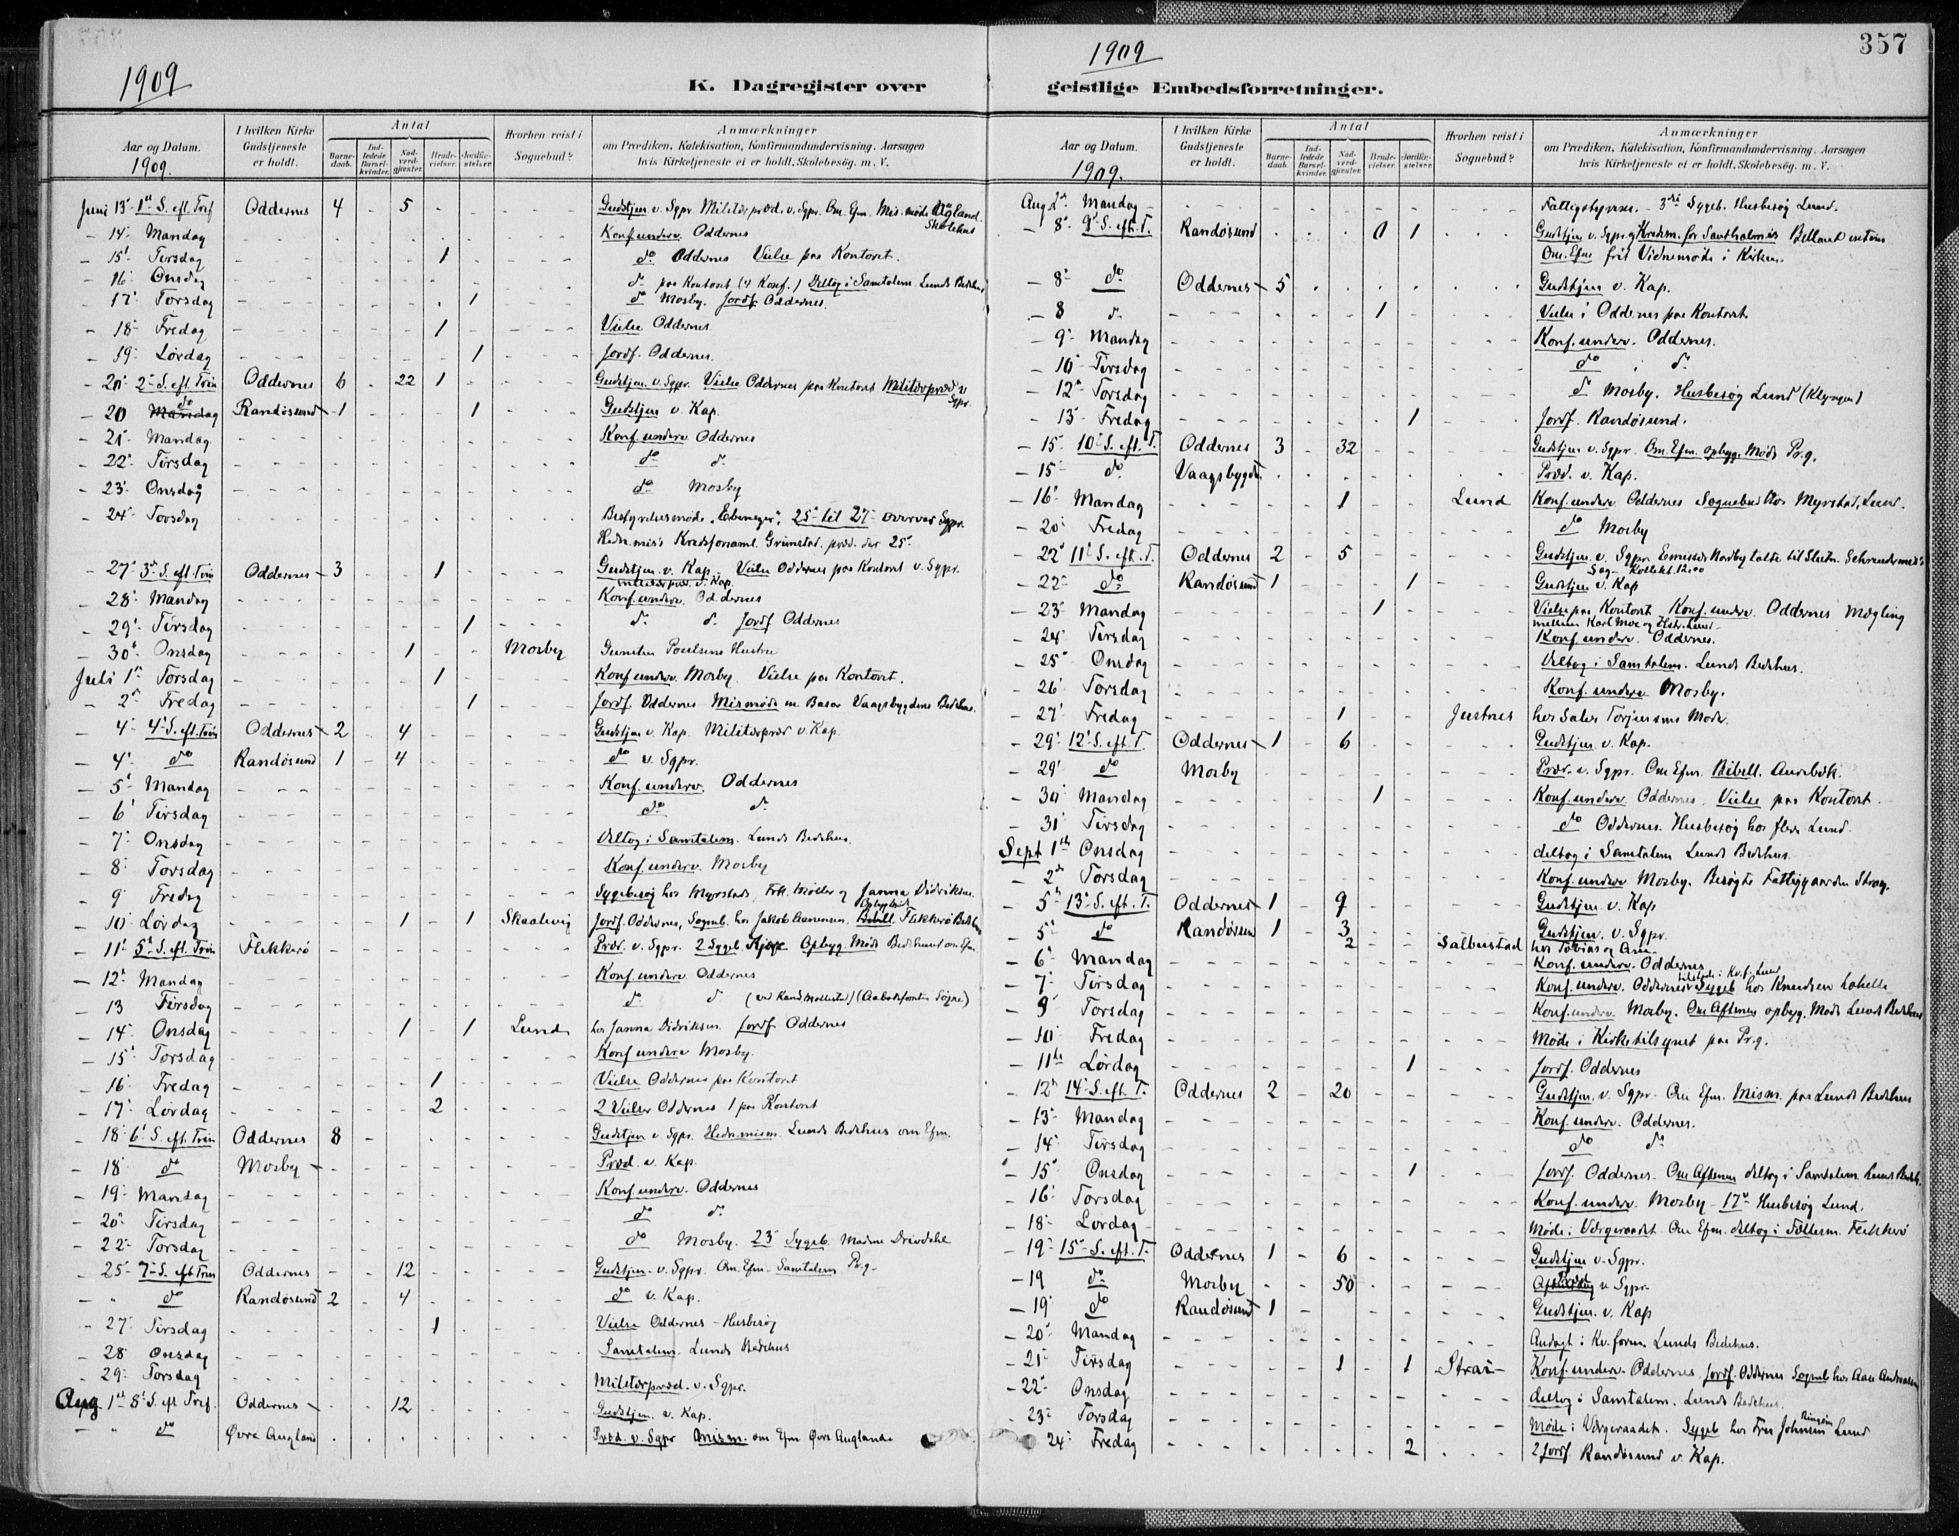 357
1909
1909
K. Dagregister over geistlige Embedsforretninger.
Aar og Datum. 1909.
I hvilken Kirke Gudstjeneste er holdt.
Antal
Barnedaab.
Indledede Barselkvinder.
Nadverdgjæster.
Brudevielser.
Jordfæstelser.
Hvorhen reist i Sognebud?
Anmærkninger
om Prædiken, Katekisation, Konfirmandundervisning, Aarsagen
hvis Kirketjeneste ei er holdt, Skolebesøg. m. V.
Juni 13 1st S. eft. Tref Oddernes 4 - 5 Gudstjen v. Sgpr. Militærpræd. v. Sgpr. Om Efm. Mis. møde Augland Skolehus
- 14 Mandag Konf. underv. Oddernes
- 15 Tirsdag 1 do Oddernes Vielse paa Kontoret.
- 16 Onsdag do paa Kontoret (4 Konf.) Deltog i Samtalem. Lunds Bedehus
- 17 Torsdag 1 do Mosby. Jordf. Oddernes.
- 18 Fredag 1 Vielse Oddernes.
- 19 Lørdag 1 Jordf. Oddernes.
- 20 2 S. eft. Trin Oddernes 6 - 22 1 Gudstjen. v. Sgpr. Vielse Oddernes paa Kontoret Militærpræd v Sgpr.
- 20 do Randøsund 1 1 Gudstjen v. Kap.
- 21 Mandag Konf. underv Oddernes
- 22 Tirsdag do do
- 23 Onsdag do Mosby
- 24 Torsdag Bestyrelsesmøde "Ebenezer". 25 til 27 overvar Sgpr.
Hedn.mis's Kredsforsaml. Grimstad. præd. der 25.
- 27 3 S. eft. Trin Oddernes 3 1 Gudstjen. v. Kap. Vielse Oddernes paa Kontoret v. Sgpr.
Militærpræd. v. Kap.
- 28 Mandag Konf. underv. Oddernes
- 29 Tirsdag 1 do do Jordf Oddernes
- 30 Onsdag 1 Mosby Poulsens Hustru
Juli 1st Torsdag 1 Konf. underv. Mosby. Vielse paa Kontoret.
- 2 Fredag 1 Jordf. Oddernes Mismøde en Basar Vaagsbygdens Bedehus.
- 4 4 S. eft. Trin Oddernes 2 - 4 Gudstjen v. Kap. Militærpræd v. Kap.
- 4 do Randøsund 1 - 4 do v. Sgpr.
- 5 Mandag Konf. underv. Oddernes
- 6 Tirsdag do do
- 7 Onsdag Deltog i Samtalem. Lunds Bedehus.
- 8 Torsdag Konf. underv. Mosby
- 9 Fredag Sygebesøg hos Myrstads, Frk. Møller og Janna Didriksen.
- 10 Lørdag 1 1 Skaalevig Jordf. Oddernes, Sogneb. hos Jakob Flekkerø Bedehus
- 11 5 S. eft. Trin Flekkerø Præd. v. Sgpr. 2 Sygeb. Opbyg. Møde Bedehuset om Efm.
- 12 Mandag Konf. underv Oddernes
- 13 Tirsdag do do
- 14 Onsdag 1 1 Lund hos Janna Didriksen. Jordf Oddernes
- 15 Torsdag Konf underv Mosby.
- 16 Fredag 1 Vielse Oddernes paa Kontoret
- 17 Lørdag 2 2 Vielser Oddernes 1 paa Kontoret
- 18 6 S. eft. Trin Oddernes 8 Gudstjen v. Sgpr. Hedn.mism. Lunds Bedehus om Efm.
- 18 do Mosby Præd. v. Kap.
- 19 Mandag Konf. underv. Oddernes
- 20 Tirsdag do do
- 22 Torsdag do Mosby. 23 Sygeb. Madme Drivdehl
- 25 7 S. eft Trin Oddernes 12 Gudstjen. v. Sgpr. Om Efm. Samtalem Pr.g.
- " do Randøsund 2 - 4 do v. Kap.
- 27 Tirsdag 1 Vielse Oddernes - Husbesøg
- 28 Onsdag Samtalem. Lunds Bedehus
- 29 Torsdag Militærpræd. v. Sgpr.
Aug 1st 8 S. eft Tref. Oddernes 12 Gudstjen. v. Kap.
- " do Øvre Augland Præd. v. Sgpr Mism. om Efm Øvre Auglande
Aar og Datum. 1909.
I hvilken Kirke Gudstjeneste er holdt.
Antal
Barnedaab.
Indledede Barselkvinder.
Nadverdgjæster.
Brudevielser.
Jordfæstelser.
Hvorhen reist i Sognebud?
Anmærkninger
om Prædiken, Katekisation, Konfirmandundervisning, Aarsagen
hvis Kirketjeneste ei er holdt, Skolebesøg. m. V.
Aug 2 Mandag Fattigstyrese. - 3 Sygeb. Husbesøg Lund.
- 8 9 S. eft. T. Randøsund 0 1 Gudstjen v. Sgpr. og Kredsm. for Santhalmis
Om Efm frit Vidnemøde i Kirken.
- 8 do Oddernes 5 Gudstjen v. Kap.
- 8 do 1 Vielse i Oddernes paa Kontoret
- 9 Mandag Konf. underv. Oddernes.
- 10 Tirsdag do do
- 12 Torsdag do Mosby. Husbesøg Lund
- 13 Fredag 1 Jordf. Randøsund.
- 15 10 S. eft. T. Oddernes 3 - 32 Gudstjen v. Sgpr. Om Efm. opbygg. Møde Pr.g.
- 15 do Vaagsbygden Præd. v. Kap.
- 16 Mandag 1 Lund Konf. underv Oddernes Sognebud Hos Myrstad, Lund.
- 20 Fredag do Mosby
- 22 11 S. eft. T. Oddernes 2 - 5 Gudstjen v. Sgpr. Emissær Nordby talte til
Sag - Kollekt. 12,00
- 22 do Randøsund 1 1 Gudstjen v. Kap
- 23 Mandag 1 Vielse paa Kontoret Konf. underv. Oddernes Mægling
mellem Karl Moe og Hstr. Lund
- 24 Tirsdag Konf. underv. Oddernes.
- 25 Onsdag Deltog i Samtalem. Lunds Bedehus.
- 26 Torsdag Konf. underv Mosby.
- 27 Fredag 1 Justnes hos Salve Torjusens Moder.
- 29 12 S. eft. T. Oddernes 1 - 6 Gudstjen. v. Kap.
- 29 do Mosby Præd. v. Sgpr. Om Efm. Bibell. Aurebæk.
- 30 Mandag 1 Konf. underv Oddernes. Vielse paa Kontoret.
- 31 Tirsdag do Oddernes. Husbesøg hos flere Lund.
Sept 1st Onsdag deltog i Samtalem Lunds Bedehus.
- 2 Torsdag Konf. underv Mosby. Besøgte Fattiggaarden Stray.
- 5 13 S. eft. T. Oddernes 1 - 9 Gudstjen. v. Kap
- 5 do Randøsun 1 - 3 Gudstjen. v. Sgpr.
2 Salbustad hos Tobias og
- 6 Mandag Konf. underv. Oddernes
- 7 Tirsdag Konf. underv. Oddernes Sygeb hos Knudsen
- 9 Torsdag Konf. underv Mosby. Om Aftenen opbyg. Møde Lunds Bedehus
- 10 Fredag Møde i Kirketilsynet paa Pr.g.
- 11 Lørdag 1 Jordf. Oddernes
- 12 14 S. eft. T. Oddernes 2 - 20 Gudstjen. v. Sgpr. Om Efm. Mism. paa Lunds Bedehus
- 13 Mandag Konf. underv. Oddernes.
- 14 Tirsdag do do
- 15 Onsdag 1 Jordf. Oddernes. Om Aftenen deltog i Samtalem Lunds Bedeh.
- 16 Torsdag Konf. underv. Mosby - 17 Husbesøg Lund.
- 18 Lørdag Møde i Værgeraadet. Om Efm. deltog i Flekkerø
- 19 15 S. eft. T. Oddernes 1 - 6 Gudstjen v. Sgpr.
- 19 do Mosby 50 v Sgpr.
- 19 do Randøsund 1 Gudstjen. v. Kap
- 20 Mandag Andagt i Kv.foren Lunds Bedehus.
- 21 Tirsdag 1 1 Strai Konf. underv. Oddernes, Jordf. Oddernes Sogneb hos
- 22 Onsdag deltog i Samtalem. Lunds Bedehus.
- 23 Torsdag Møde i Værgeraadet. Sygeb hos Fru Johnsen Lund
- 24 Fredag 2 2 Jordf. Randøsund v. Kap.